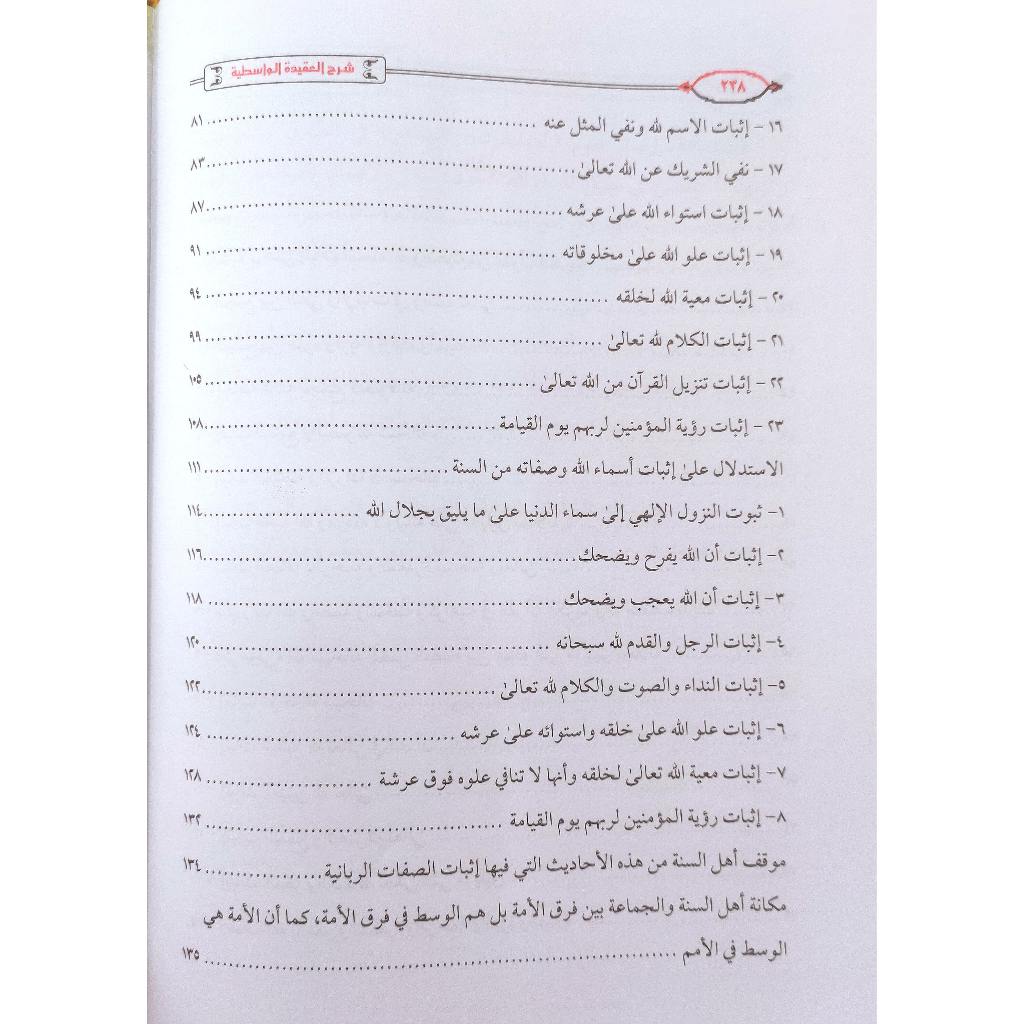 ٢٣٨
شرح العقيدة الواسطية
١٦ - إثبات الاسم لله ونفي المثل عنه ........ ٨١
١٧ - نفي الشريك عن الله تعالىٰ ........ ٨٣
١٨ - إثبات استواء الله علىٰ عرشه ........ ٨٧
١٩ - إثبات علو الله علىٰ مخلوقاته ........ ٩١
٢٠ - إثبات معية الله لخلقه ........ ٩٤
٢١ - إثبات الكلام لله تعالىٰ ........ ٩٩
٢٢ - إثبات تنزيل القرآن من الله تعالىٰ ........ ١٠٥
٢٣ - إثبات رؤية المؤمنين لربهم يوم القيامة ........ ١٠٨
الاستدلال علىٰ إثبات أسماء الله وصفاته من السنة ........ ١١١
١- ثبوت النزول الإلهي إلىٰ سماء الدنيا علىٰ ما يليق بجلال الله ........ ١١٤
٢- إثبات أن الله يفرح ويضحك ........ ١١٦
٣- إثبات أن الله يعجب ويضحك ........ ١١٨
٤- إثبات الرجل والقدم لله سبحانه ........ ١٢٠
٥- إثبات النداء والصوت والكلام لله تعالىٰ ........ ١٢٢
٦- إثبات علو الله علىٰ خلقه واستوائه علىٰ عرشه ........ ١٢٤
٧- إثبات معية الله تعالىٰ لخلقه وأنها لا تنافي علوه فوق عرشة ........ ١٢٨
٨- إثبات رؤية المؤمنين لربهم يوم القيامة ........ ١٣٢
موقف أهل السنة من هذه الأحاديث التي فيها إثبات الصفات الربانية ........ ١٣٤
مكانة أهل السنة والجماعة بين فرق الأمة بل هم الوسط في فرق الأمة، كما أن الأمة هي
الوسط في الأمم ........ ١٣٥